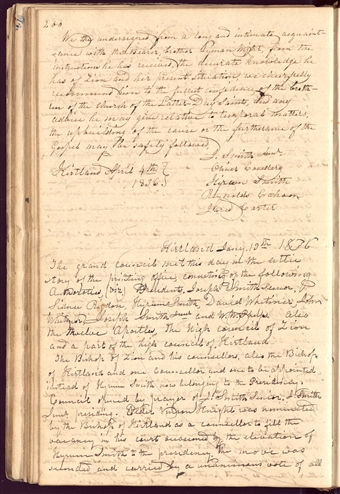 200
We the undersigned from a long and intimate acquaint-
ance with the Bearer, brother Hyman Wight, from the
instructions he has received, the accurate knowledge he
has of Zion and her present situation, can cheerfully
recommend him to the fullest confidence of the breth-
ren of the church of the Latter Day Saints, and any
advice he may give relative to temporal matters,
the upbuilding of the cause or the furtherance of the
Gospel may be safely followed
Kirtland April 4th
J. Smith Junr
Oliver Cowdery
Hyrum Smith
Reynolds Cahoon
Jared Carter
Kirtland Jany. 13th 1836
The grand council met this day in the
story of the printing office, consisting of the following
Authorities (viz) Presidents, Joseph Smith Senior,
Sidney Rigdon Hyrum Smith David Whitmer John
Whitmer, Joseph Smith Junr and W. W. Phelps also
the Twelve Apostles the high council of Zion
and a part of the high council of Kirtland.
The Bishop of Zion and his counsellors, also the Bishop
of Kirtland and one Counsellor and one to be appointed
instead of Hyrum Smith now belonging to the Presidency.
Council opened by prayer of J. Smith Senior, J. Smith
Junr presiding. Elder Vinson Knight was nominated
by the Bishop of Kirtland as a counsellor to fill the
vacancy in his court occasioned by the elevation of
Hyrum Smith to the presidency, the move was
seconded and carried by a unanimous vote of all